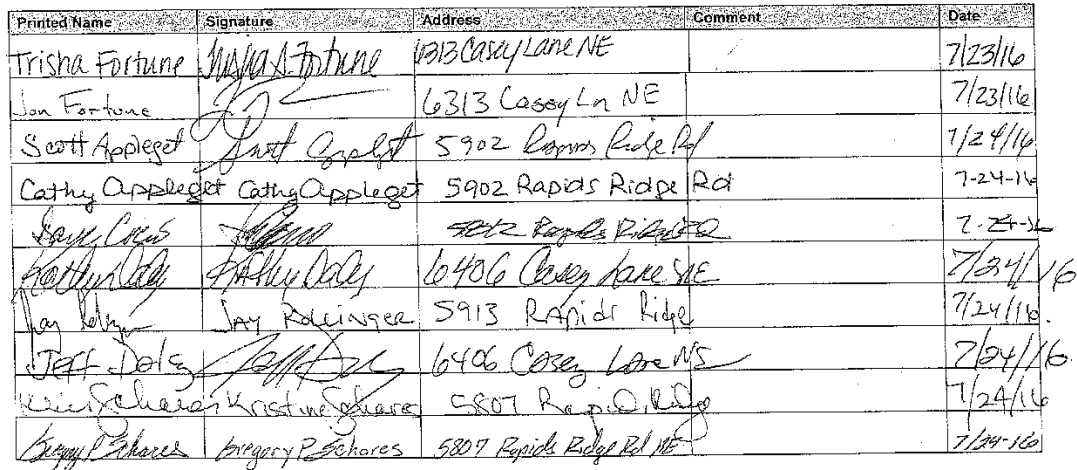 Printed Name Signature Address Comment Date
Trisha Fortune Trisha S Fortune 6313 Casey Lane NE 7/23/16
Jon Fortune 6313 Casey Ln NE 7/23/16
Scott Appleget Scott Applget 5902 Rapids Ridge Rd 7/24/16
Cathy Appleget Cathy Appleget 5902 Rapids Ridge Rd 7-24-16
Rapids Ridge Rd 7-24-16
Kathy Daley 6406 Casey Lane NE 7/24/16
Jay Jay Rolinger 5913 Rapids Ridge 7/24/16
Jeff Daley Jeff 6406 Casey Lane NE 7/24/16
Schares Kristine Schares 5807 Rapids Ridge 7/24/16
Gregory P Schares Gregory P Schares 5807 Rapids Ridge Rd NE 7/24-16